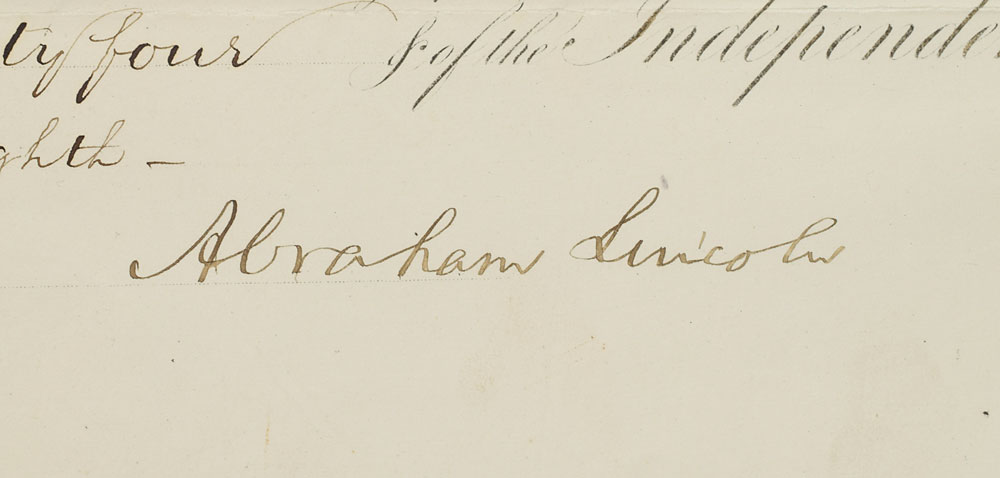 ty four & of the Independe
ghth –
Abraham Lincoln